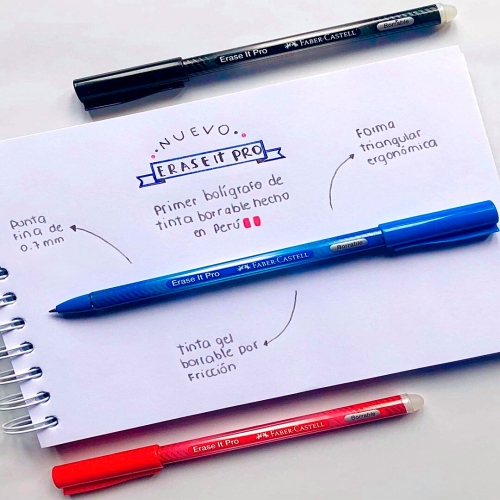 Erase It Pro FABER-CASTELL Borrable
NUEVO
ERASE IT PRO
Primer bolígrafo de
tinta borrable hecho
en Perú
Forma
triangular
ergonómica
Punta
fina de
0.7 mm
Erase It Pro FABER-CASTELL Borrable
tinta gel
borrable por
Fricción
Erase It Pro FABER-CASTELL Borrable